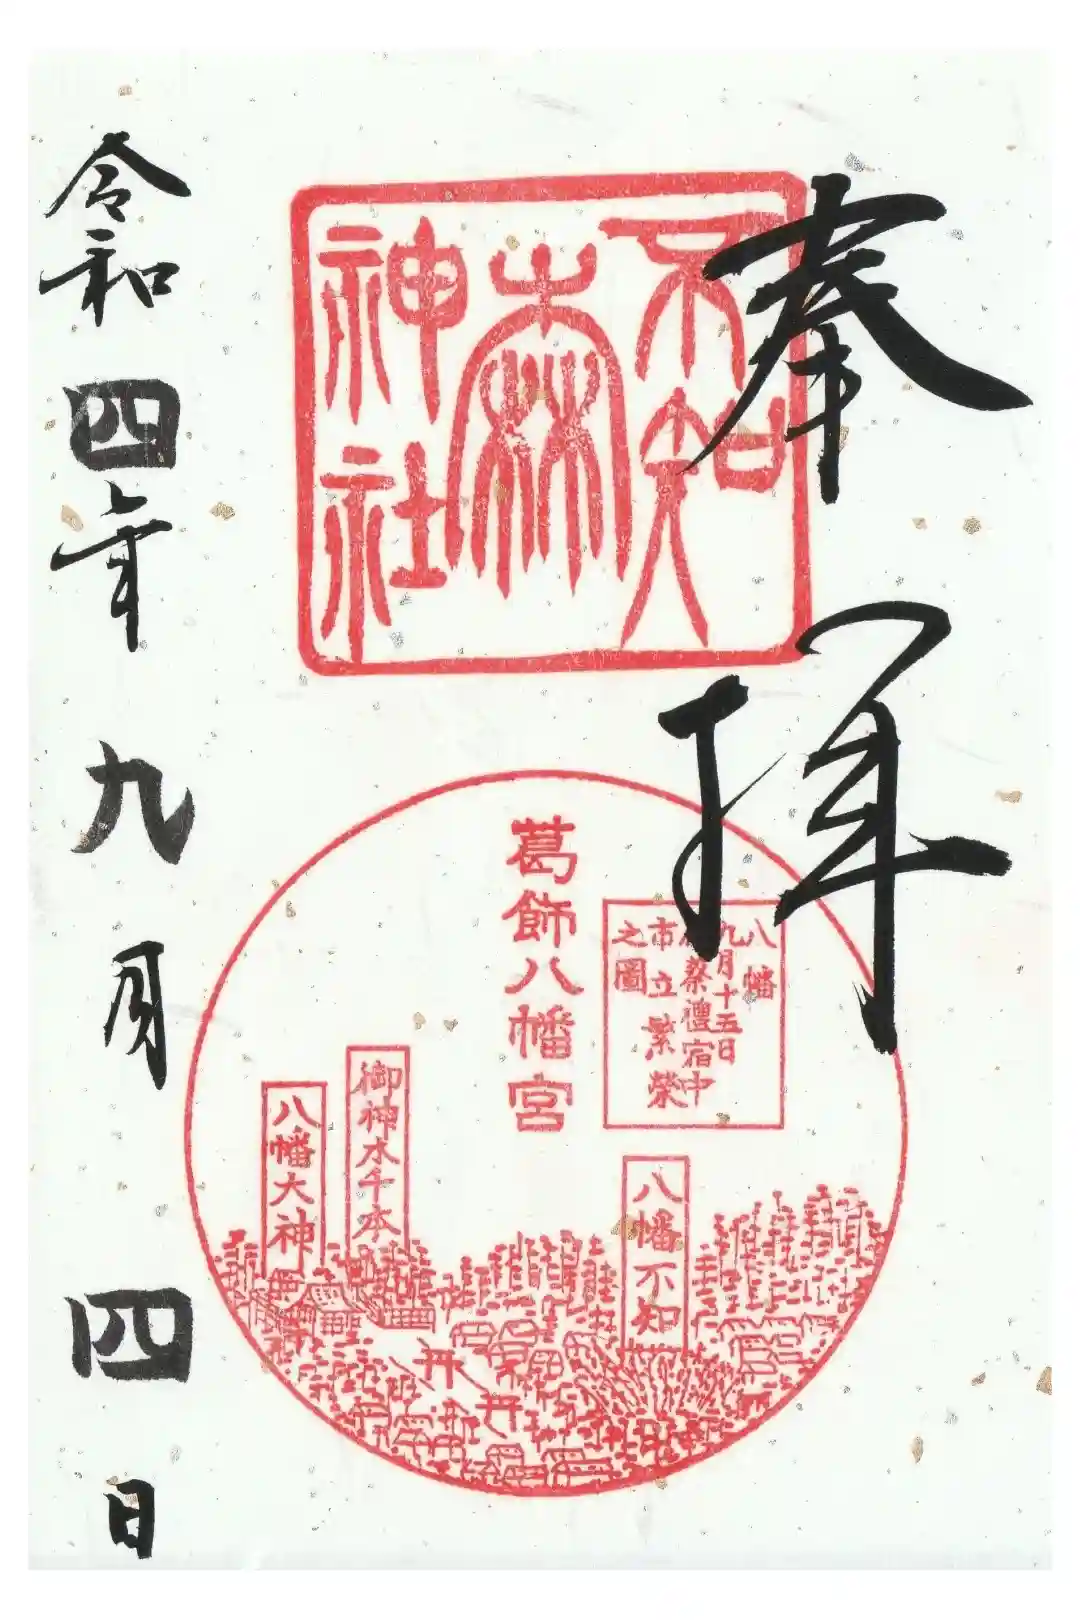 奉拝
不知
森
神社
葛飾八幡宮
八幡
九月十五日
祭禮宿中
市立繁榮
之圖
八幡不知
御神水千本
八幡大神
令和四年九月四日